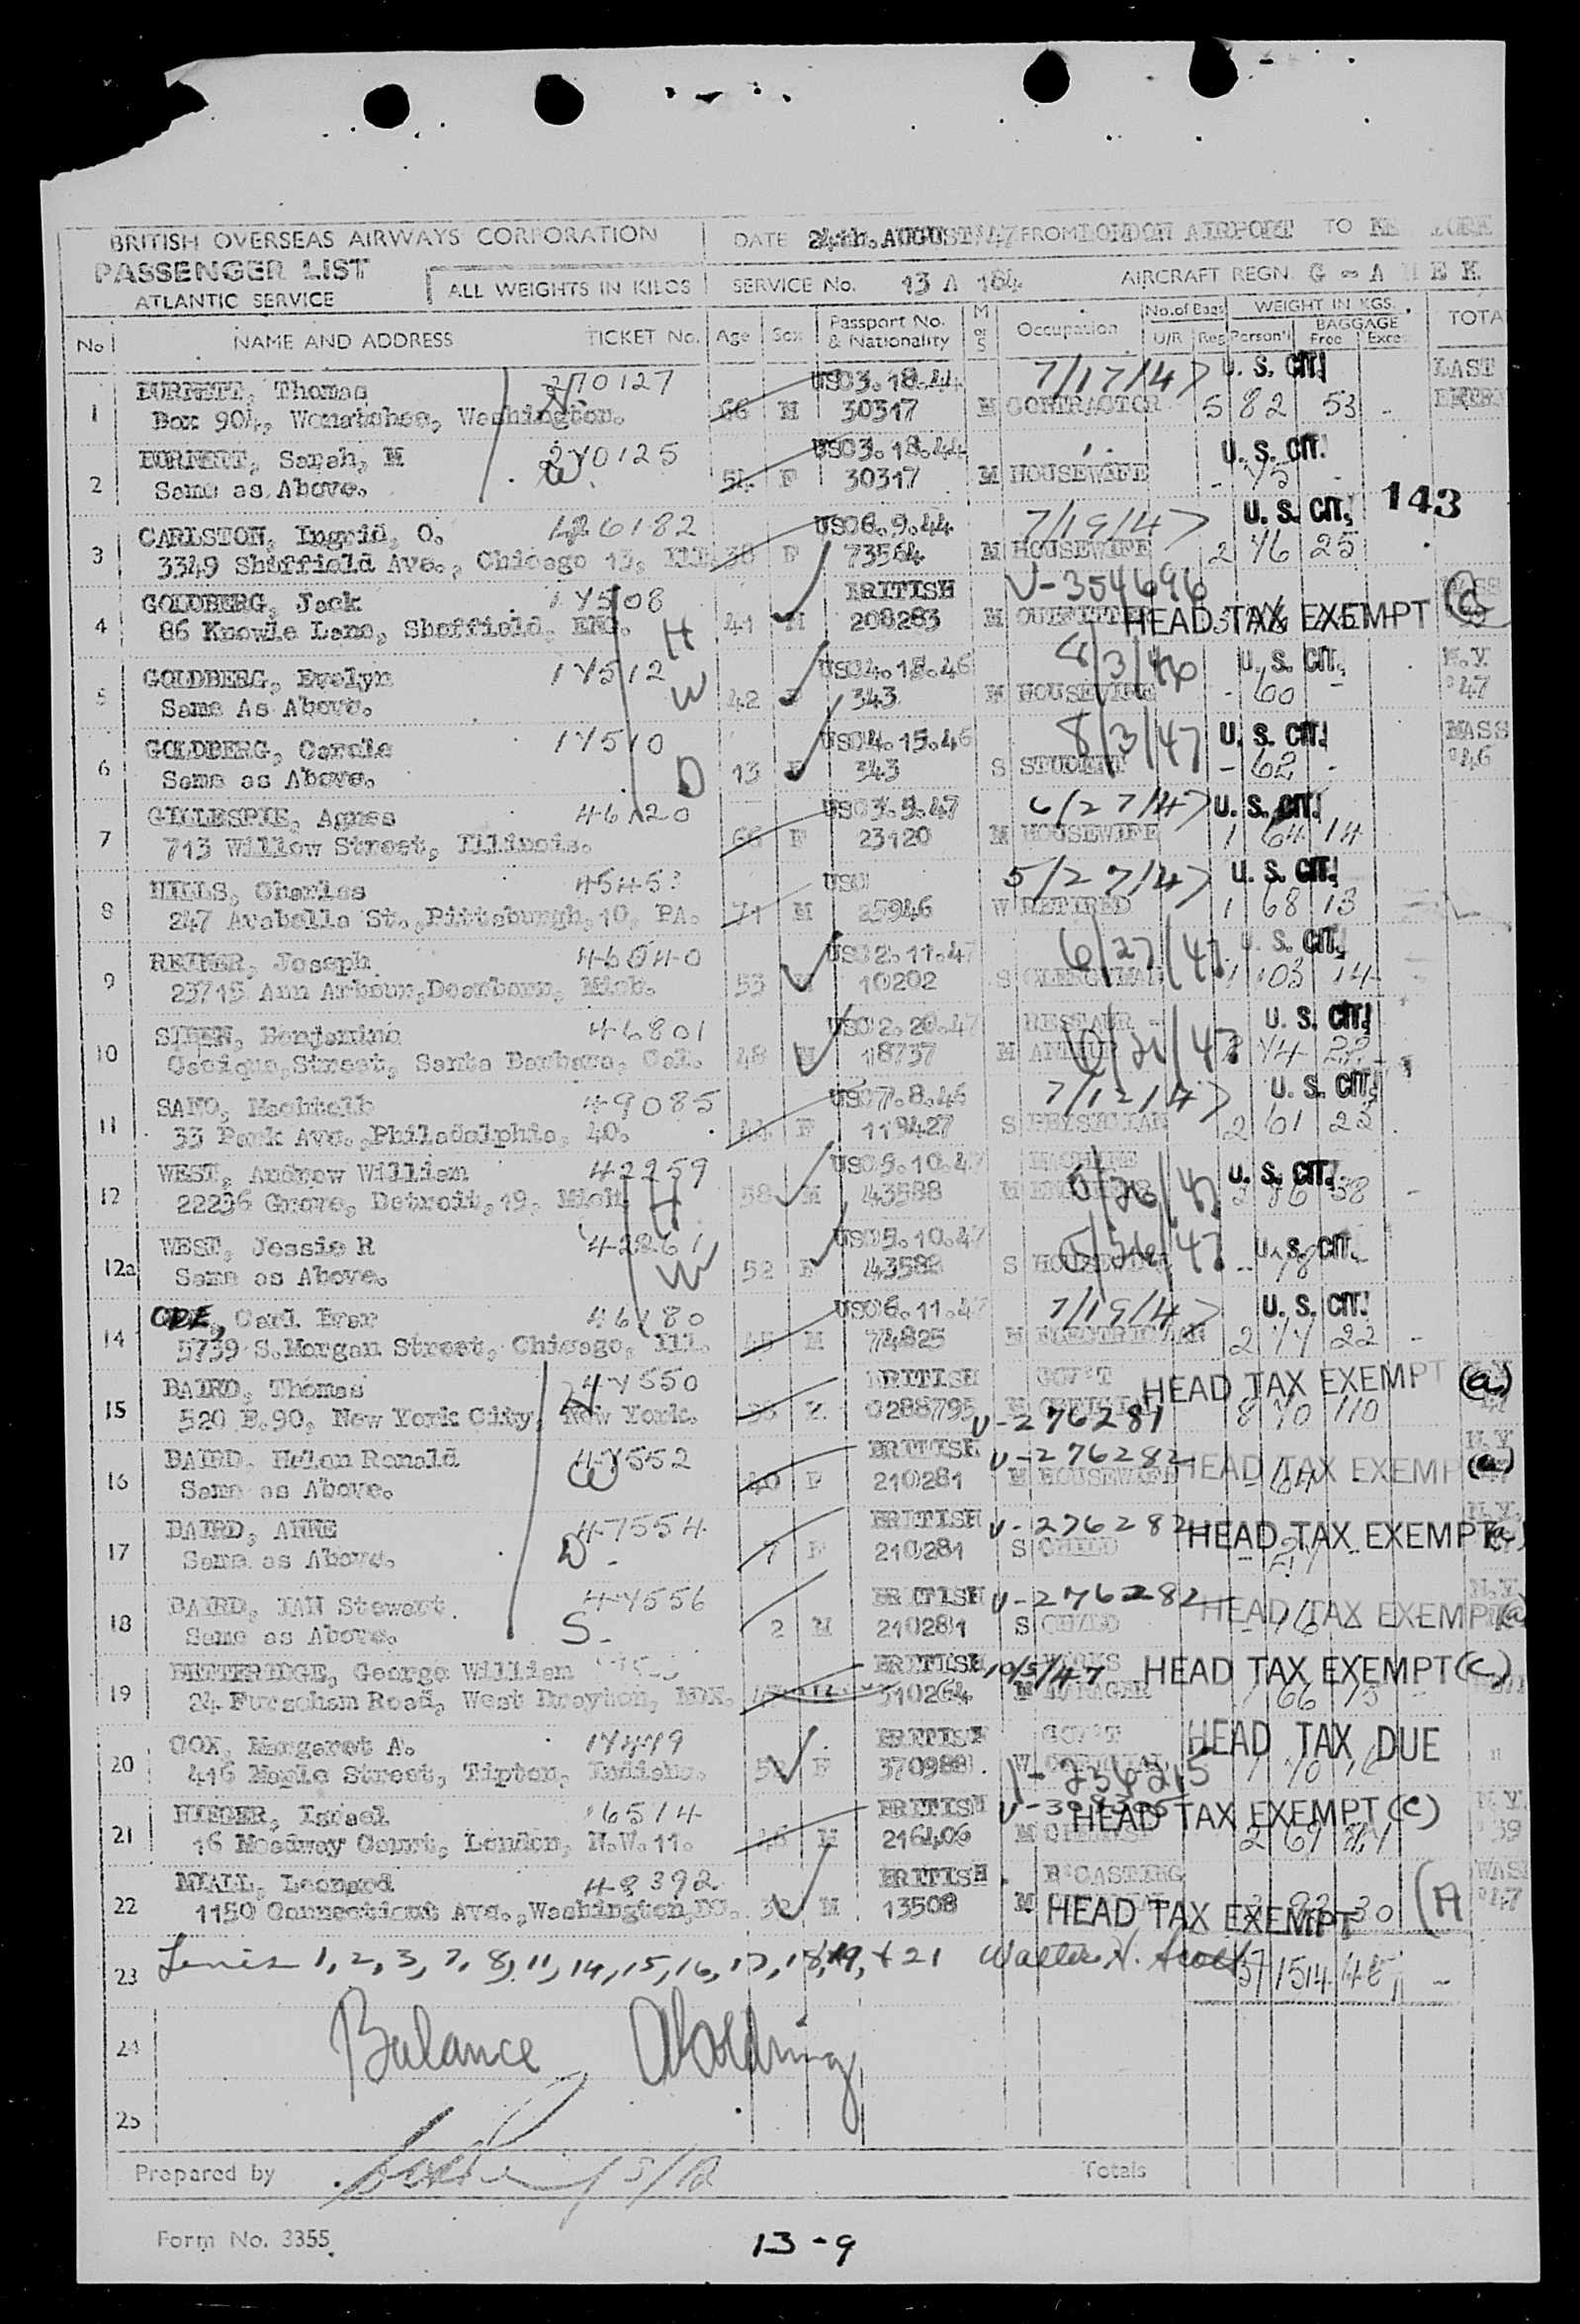 BRITISH OVERSEAS AIRWAYS CORPORATION
PASSENGER LIST
ATLANTIC SERVICE
ALL WEIGHTS IN KILOS
DATE 24th. AUGUST '47 FROM LONDON AIRPORT TO
SERVICE No. 13 A 184 AIRCRAFT REGN. G - A H E K
No NAME AND ADDRESS TICKET No. Age Sex Passport No. & Nationality M or S Occupation No. of Bags U/R Reg WEIGHT IN KGS. Person'l BAGGAGE Free Exce TOTA
1 BURNETT, Thomas 270127 USO3.18.44 7/17/47 U. S. CIT. LAST
Box 904, Wenatchee, Washington. 66 M 30317 M CONTRACTOR 5 82 53 -
2 BURNETT, Sarah, M 270125 USO3.18.44 U. S. CIT.
Same as Above. W. 54 F 30317 M HOUSEWIFE - 75
143
3 CARLSTON, Ingrid, O. 46182 USO6.9.44 7/19/47 U. S. CIT.
3349 Sheffield Ave., Chicago 13, Ill. 38 F 73564 M HOUSEWIFE 2 76 25
4 GOLDBERG, Jack 17508 BRITISH V-354696
86 Knowle Lane, Sheffield, ENG. H 41 M 208283 M OUTFITTER HEAD TAX EXEMPT (C)
5 GOLDBERG, Evelyn 17512 USO4.18.46 8/3/46 U. S. CIT. N.Y.
Same As Above. W 42 F 343 M HOUSEWIFE - 60 - '47
6 GOLDBERG, Carole 17510 USO4.15.46 8/3/47 U. S. CIT. MASS
Same as Above. D 13 F 343 S STUDENT - 62 - '46
7 GILLESPIE, Agnes 46120 USO3.9.47 6/27/47 U. S. CIT.
713 Willow Street, Illinois. 66 F 23120 M HOUSEWIFE 1 64 14
8 HILLS, Charles 45453 USO 5/27/47 U. S. CIT.
247 Arabella St., Pittsburgh, 10, PA. 71 M 25946 W RETIRED 1 68 13
9 Joseph 46540 USO2.11.47 6/27/47 U. S. CIT.
23715 Ann Arbour, Dearborn, Mich. 53 M 10202 S CLERGYMAN 1 103 14
10 46801 USO2.20.47 U. S. CIT.
Street, Santa Barbara, Cal. 48 M 18737 M 74 22
11 49085 USO7.8.46 7/12/47 U. S. CIT.
33 Park Ave., Philadelphia, 40. 44 F 119427 S PHYSICIAN 2 61 23
12 WEST, Andrew William 42259 USO5.10.47 MACHINE 5/26/47 U. S. CIT.
22236 Grove, Detroit, 19, Mich H 58 M 43588 M ENGINEER 2 86 38 -
12a WEST, Jessie R 42261 USO5.10.47 5/26/47 U. S. CIT.
Same as Above. W 52 F 43588 S HOUSEWIFE - 78
14 ODE, Carl Evar 46180 USO6.11.47 7/19/47 U. S. CIT.
5739 S. Morgan Street, Chicago, Ill. 45 M 74825 M ELECTRICIAN 2 77 22 -
15 BAIRD, Thomas 47550 BRITISH GOV'T HEAD TAX EXEMPT (a)
520 E.90, New York City, New York. 38 M 0288795 M OFFICIAL 8 70 110
V-276281
16 BAIRD, Helen Ronald 47552 BRITISH V-276282 HEAD TAX EXEMPT (a)
Same as Above. W 40 F 210281 M HOUSEWIFE - 64
17 BAIRD, ANNE 47554 BRITISH V-276282 HEAD TAX EXEMPT (a)
Same as Above. D. 7 F 210281 S CHILD
18 BAIRD, IAN Stewart. 47556 BRITISH V-276282 HEAD TAX EXEMPT (a)
Same as Above. S. 2 M 210281 S CHILD - 16
19 BETTERIDGE, George William BRITISH 10/5/47 WORKS HEAD TAX EXEMPT (C)
24 Furzeham Road, West Drayton, MDX. 310264 M MANAGER 66 15
20 COX, Margaret A. 17449 BRITISH GOV'T HEAD TAX DUE
416 Maple Street, Tipton, Indiana. 52 F 370988 W OFFICIAL 1 70 16
V-256215
21 Israel 6514 BRITISH HEAD TAX EXEMPT (C) N.Y.
16 Meadway Court, London, N.W.11. 46 M 216406 M CHEMIST 2 67 '39
22 MIALL, Leonard 48392 BRITISH B'CASTING WASH
1150 Connecticut Ave., Washington, DC. 32 M 13508 M HEAD TAX EXEMPT 30 (A '47
23 1, 2, 3, 7, 8, 11, 14, 15, 16, 17, 18, 19, + 21 Walter H. Scott 37 1514
24 Balance
25
Prepared by Totals
Form No. 3355
13-9